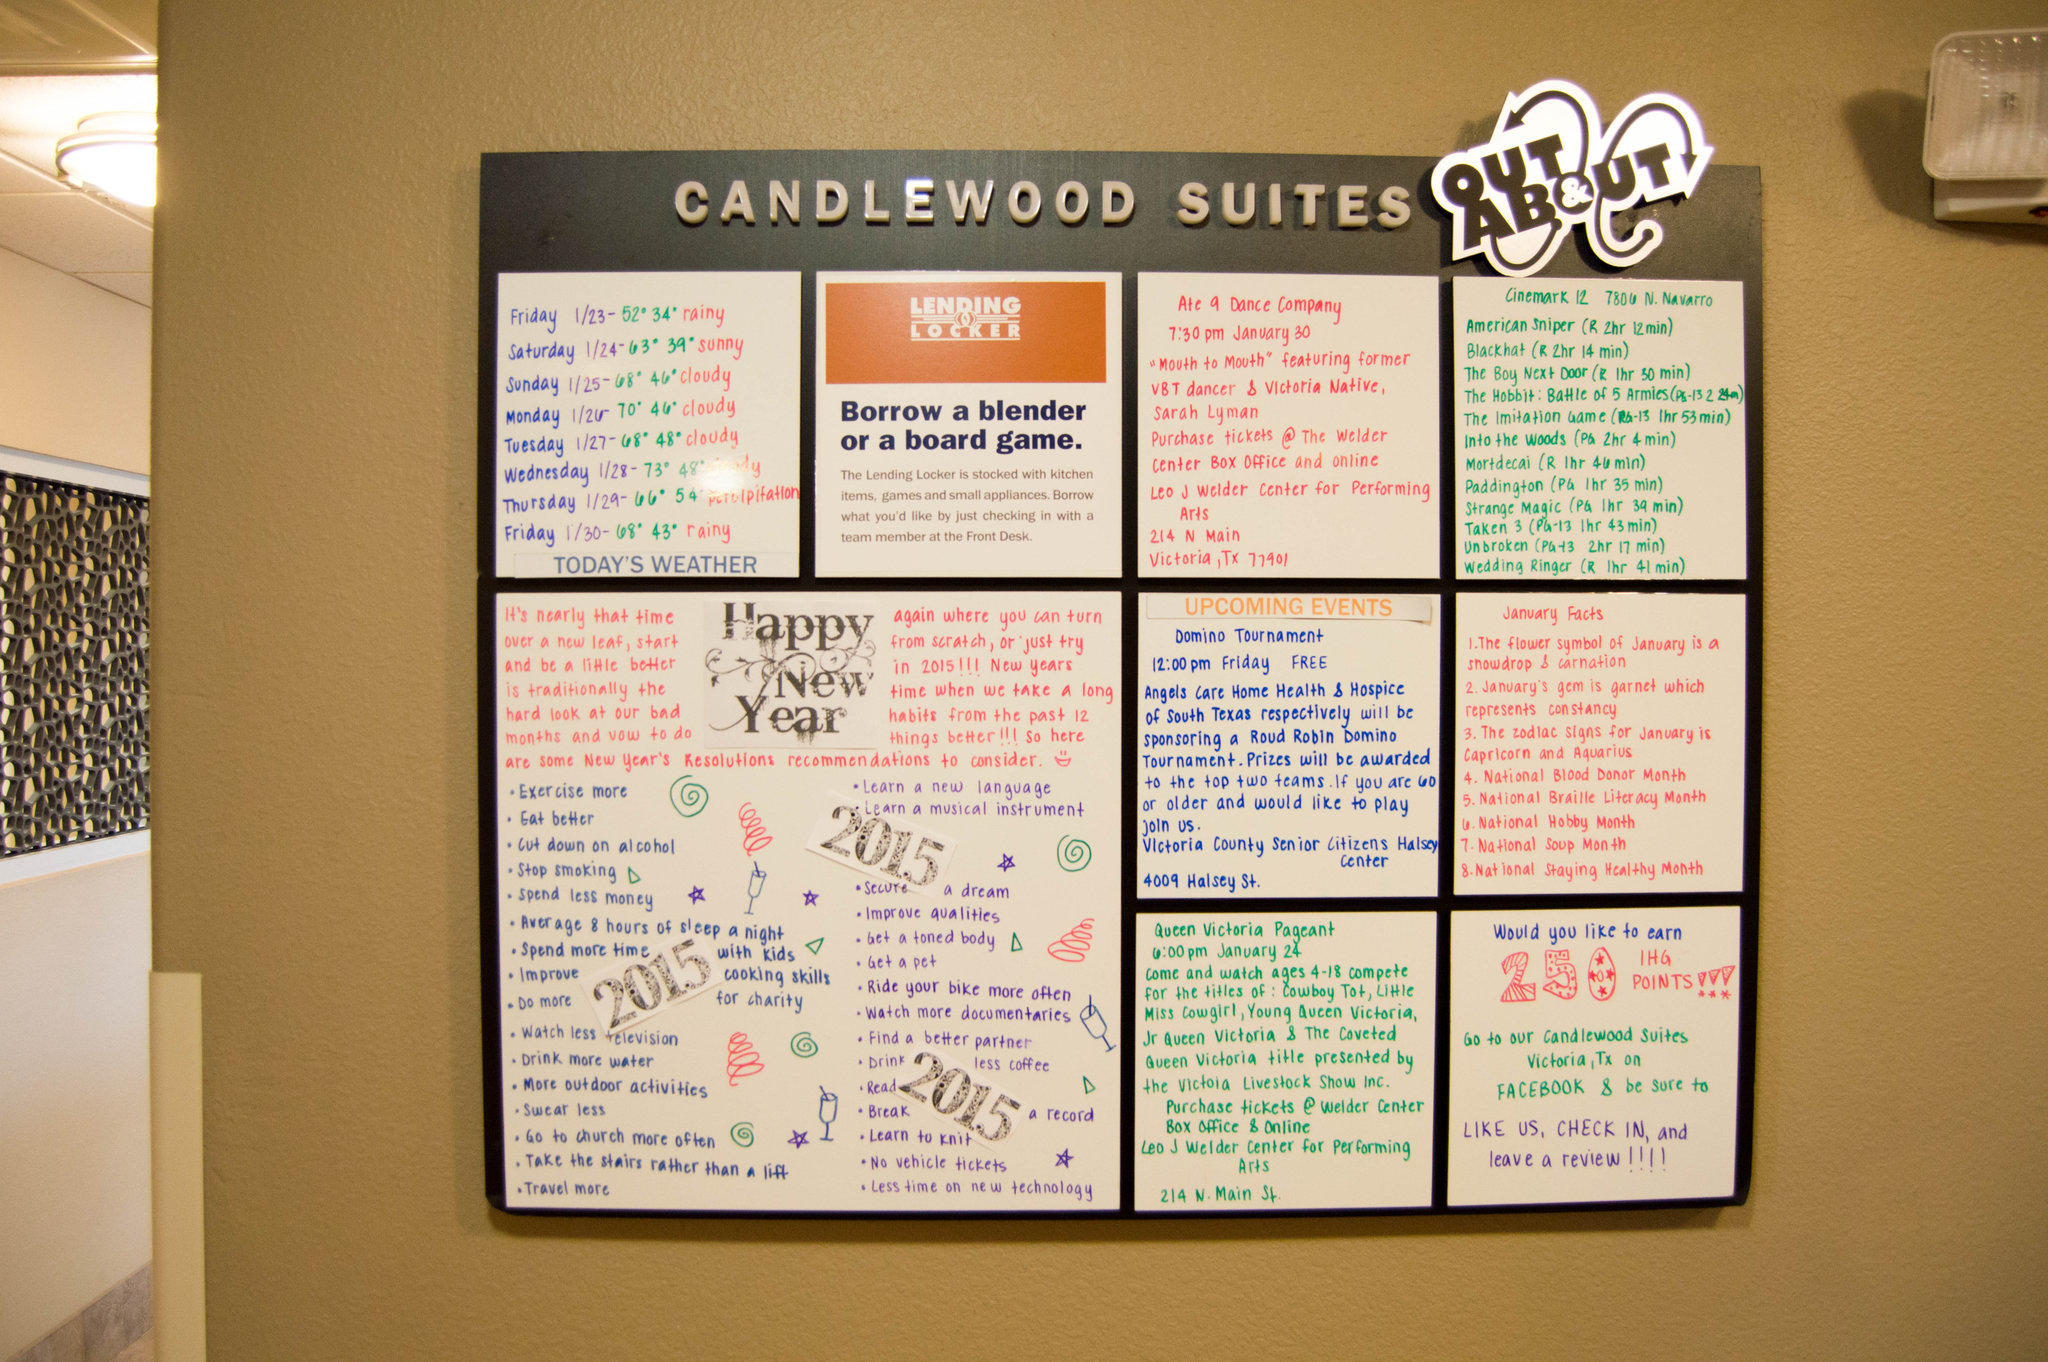 CANDLEWOOD SUITES
OUT
& ABOUT
Friday 1/23- 52° 34° rainy
Saturday 1/24- 63° 39° sunny
Sunday 1/25- 68° 46° cloudy
Monday 1/26- 70° 46° cloudy
Tuesday 1/27- 68° 48° cloudy
Wednesday 1/28- 73° 48°
Thursday 1/29- 66° 54°
Friday 1/30- 68° 43° rainy
TODAY'S WEATHER
LENDING
LOCKER
Borrow a blender
or a board game.
The Lending Locker is stocked with kitchen
items, games and small appliances. Borrow
what you'd like by just checking in with a
team member at the Front Desk.
Ate 9 Dance Company
7:30 pm January 30
"Mouth to Mouth" featuring former
VBT dancer & Victoria Native,
Sarah Lyman
Purchase tickets @ The Welder
Center Box Office and online
Leo J Welder Center for Performing
Arts
214 N Main
Victoria, Tx 77901
Cinemark 12 7806 N. Navarro
American Sniper (R 2hr 12min)
Blackhat (R 2hr 14 min)
The Boy Next Door (R 1hr 30 min)
The Hobbit: Battle of 5 Armies (PG-13 2
The Imitation Game (PG-13 1hr 53 min)
Into the Woods (PG 2hr 4 min)
Mortdecai (R 1hr 46 min)
Paddington (PG 1hr 35 min)
Strange Magic (PG 1hr 39 min)
Taken 3 (PG-13 1hr 43 min)
Unbroken (PG-13 2hr 17 min)
Wedding Ringer (R 1hr 41 min)
It's nearly that time again where you can turn
over a new leaf, start from scratch, or just try
and be a little better in 2015!!! New years
is traditionally the time when we take a long
hard look at our bad habits from the past 12
months and vow to do things better!!! So here
are some New Year's Resolutions recommendations to consider.
Happy
New
Year
• Exercise more
• Eat better
• Cut down on alcohol
• Stop smoking
• Spend less money
• Average 8 hours of sleep a night
• Spend more time with kids
• Improve cooking skills
• Do more for charity
• Watch less television
• Drink more water
• More outdoor activities
• Swear less
• Go to church more often
• Take the stairs rather than a lift
• Travel more
2015
• Learn a new language
• Learn a musical instrument
2015
• Secure a dream
• Improve qualities
• Get a toned body
• Get a pet
• Ride your bike more often
• Watch more documentaries
• Find a better partner
• Drink less coffee
• Read
• Break a record
• Learn to knit
• No vehicle tickets
• Less time on new technology
2015
UPCOMING EVENTS
Domino Tournament
12:00 pm Friday FREE
Angels Care Home Health & Hospice
of South Texas respectively will be
sponsoring a Roud Robin Domino
Tournament. Prizes will be awarded
to the top two teams. If you are 60
or older and would like to play
join us.
Victoria County Senior Citizens Halsey
Center
4009 Halsey St.
January Facts
1. The flower symbol of January is a
snowdrop & carnation
2. January's gem is garnet which
represents constancy
3. The zodiac signs for January is
Capricorn and Aquarius
4. National Blood Donor Month
5. National Braille Literacy Month
6. National Hobby Month
7. National Soup Month
8. National Staying Healthy Month
Queen Victoria Pageant
6:00 pm January 24
Come and watch ages 4-18 compete
for the titles of: Cowboy Tot, Little
Miss Cowgirl, Young Queen Victoria,
Jr Queen Victoria & The Coveted
Queen Victoria title presented by
the Victoia Livestock Show Inc.
Purchase tickets @ Welder Center
Box Office & Online
Leo J Welder Center for Performing
Arts
214 N. Main St.
Would you like to earn
250 IHG
POINTS!!!
Go to our Candlewood Suites
Victoria, Tx on
FACEBOOK & be sure to
LIKE US, CHECK IN, and
leave a review!!!!